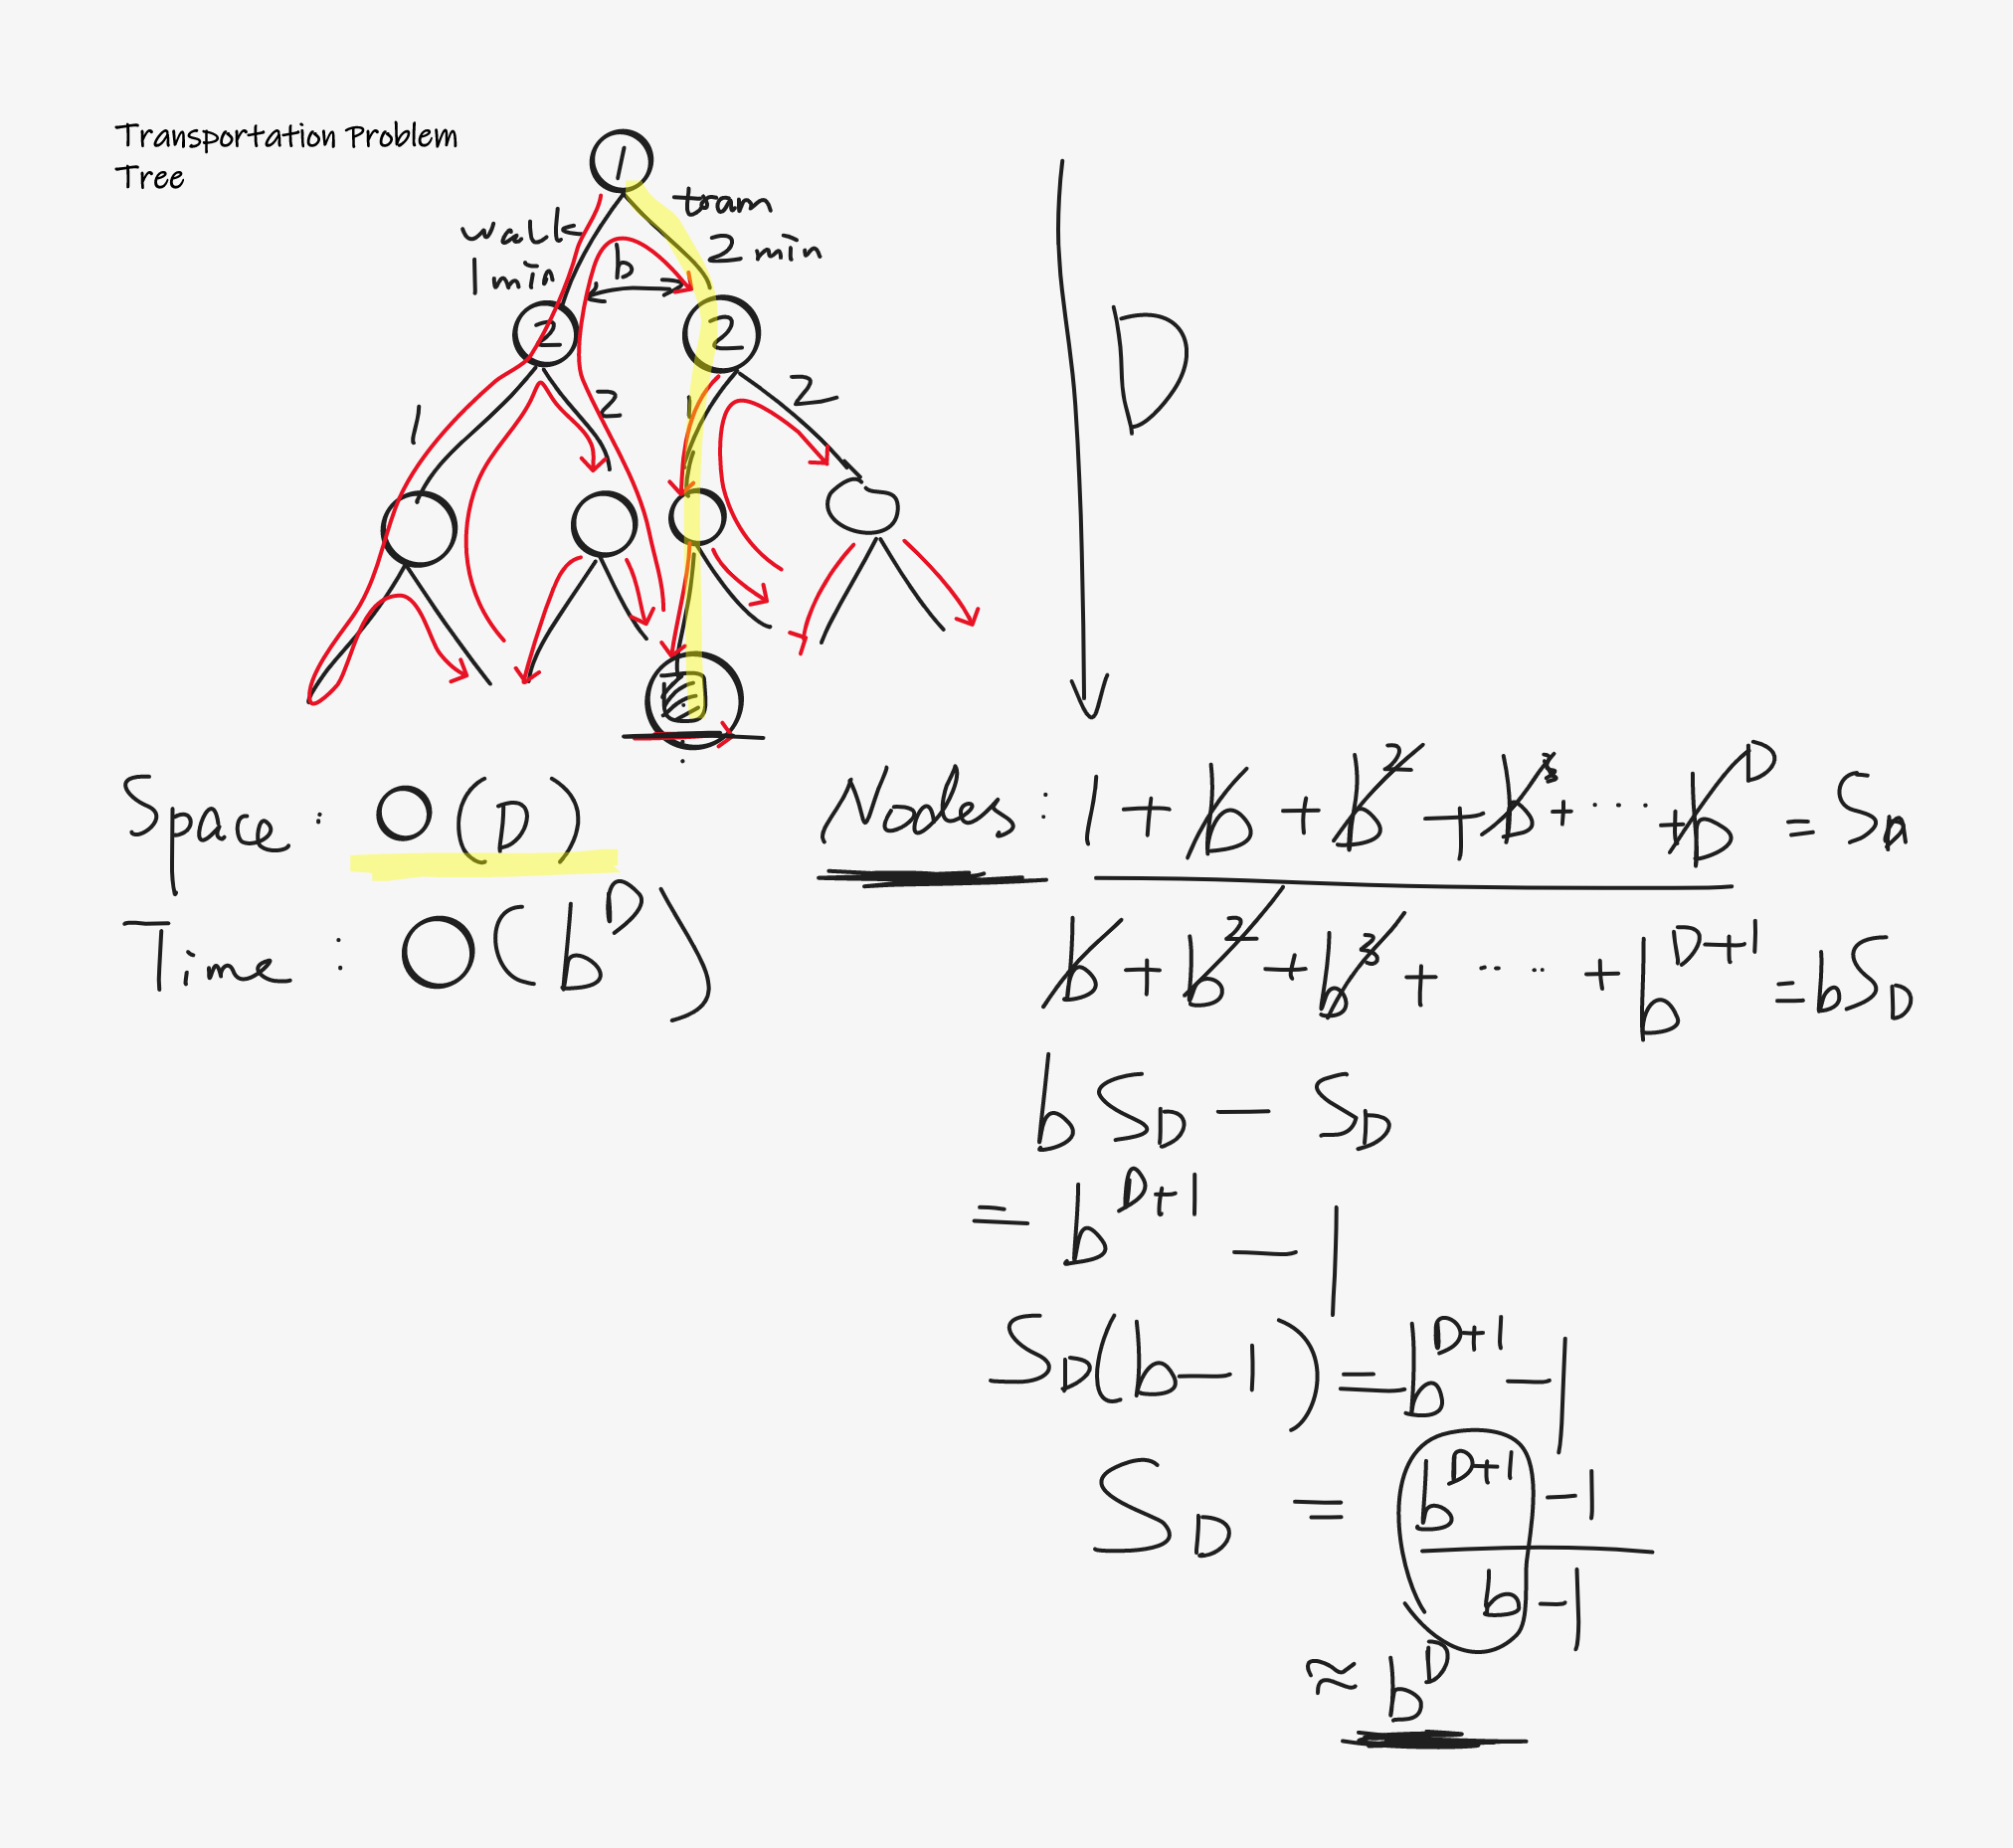 Transportation Problem
Tree
1
walk
1 min
tram
2 min
b
2
2
1
2
1
2
D
Space : O(D)
Time : O(b^D)
Nodes : 1 + b + b^2 + b^3 + ... + b^D = S_D
b + b^2 + b^3 + ... + b^{D+1} = bS_D
bS_D - S_D
= b^{D+1} - 1
S_D(b-1) = b^{D+1} - 1
S_D = \frac{b^{D+1} - 1}{b - 1}
≈ b^D